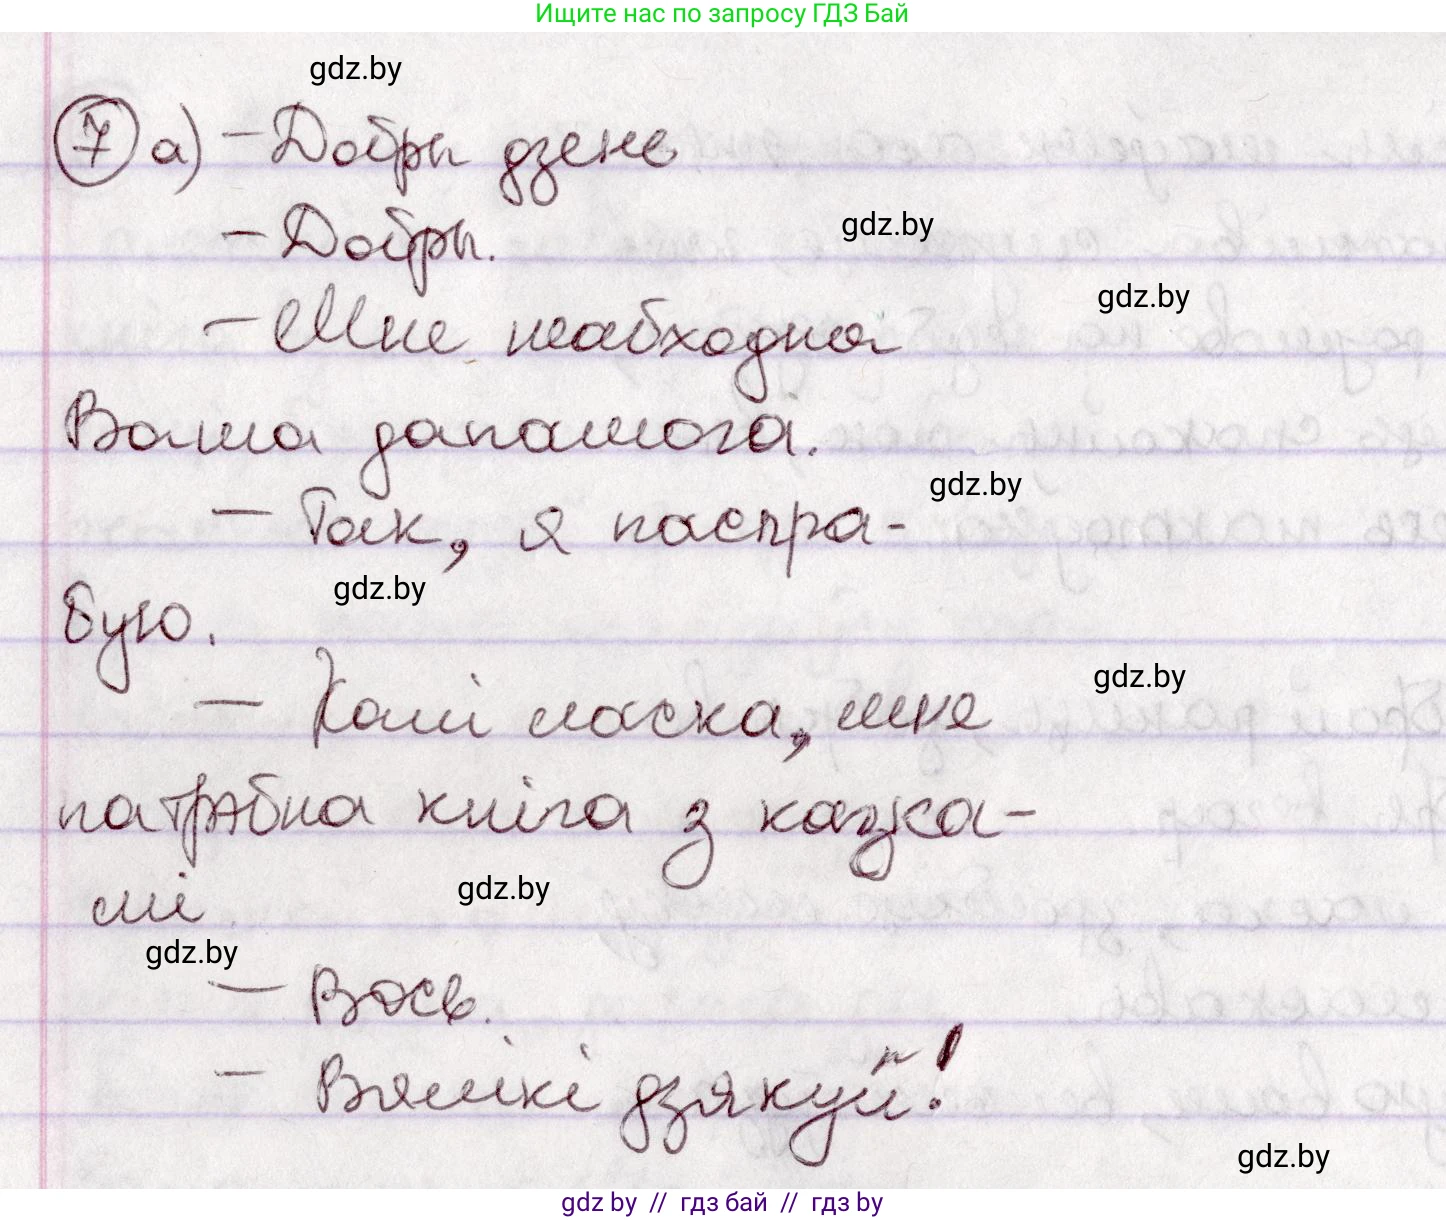 Ищите нас по запросу ГДЗ Бай
gdz.by
7 а) – Добры дзень
– Добры.
gdz.by
gdz.by
– Мне неабходна
Ваша дапамога.
gdz.by
– Так, я паспра-
gdz.by
бую.
gdz.by
– Калі ласка, мне
патрэбна кніга з казка-
мі.
gdz.by
gdz.by
– Вось.
– Вялікі дзякуй!
gdz.by
gdz by // гдз бай // гдз by